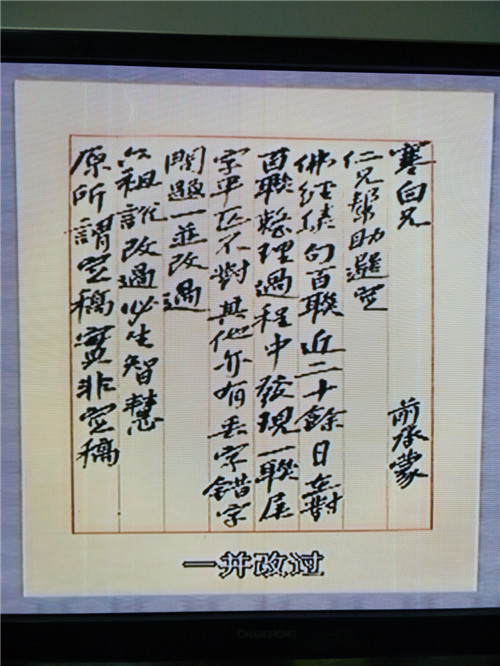 寒白兄 前承蒙
仁兄幫助選定
佛经集句百聯近二十餘日在對
百聯整理過程中發現一聯尾
字平仄不對其他亦有丢字錯字
問題一並改過
六祖説改過必生智慧
原所謂定稿實非定稿
一并改过
CHANGHONG